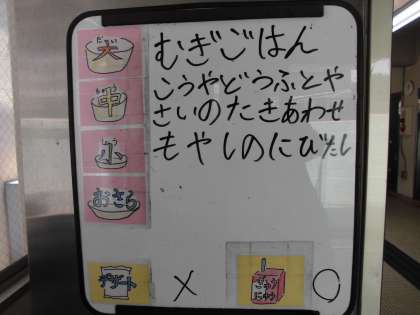 だい
大
むぎごはん
ちゅう
中
こうやどうふとや
さいのたきあわせ
しょう
小
もやしのにびたし
おさら
デザート
×
ぎゅうにゅう
○